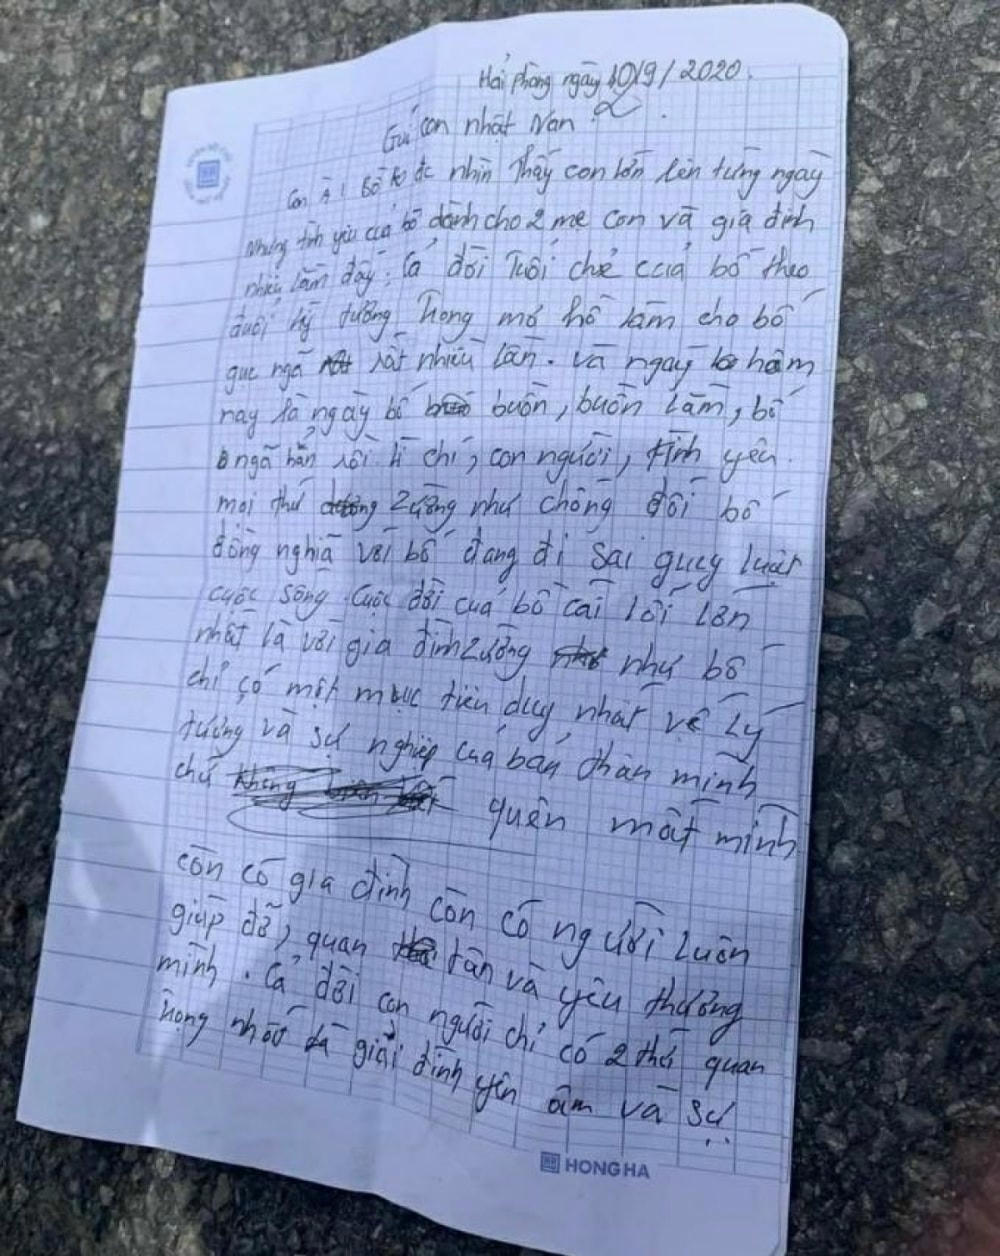 Hải phòng ngày 10/9/2020.
Gửi con nhật Nan
Con À! Bố k đc nhìn Thấy con lớn lên từng ngày
Nhưng tình yêu của bố dành cho 2 mẹ con và gia đình
nhiều lắm đấy. Cả đời Tuổi chẻ của bố theo
đuổi lý tưởng Trong mơ hồ làm cho bố
gục ngã rất nhiều lần. và ngay hôm
nay là ngày bố buồn, buồn lắm, bố
ngã hẳn rồi lí chí, con người, tình yêu.
mọi thứ zường như chống đối bố
đồng nghĩa với bố đang đi sai quy luật
cuộc sống. Cuộc đời của bố cái lỗi lớn
nhất là với gia đình zường như bố
chỉ có một mục tiêu duy nhất về lý
tưởng và sự nghiệp của bản thân mình
chứ quên mất mình
còn có gia đình còn có người luôn
giúp đỡ, quan tân và yêu thương
mình. Cả đời con người chỉ có 2 thứ quan
trọng nhất là giải đình yên âm và sự
HONG HA